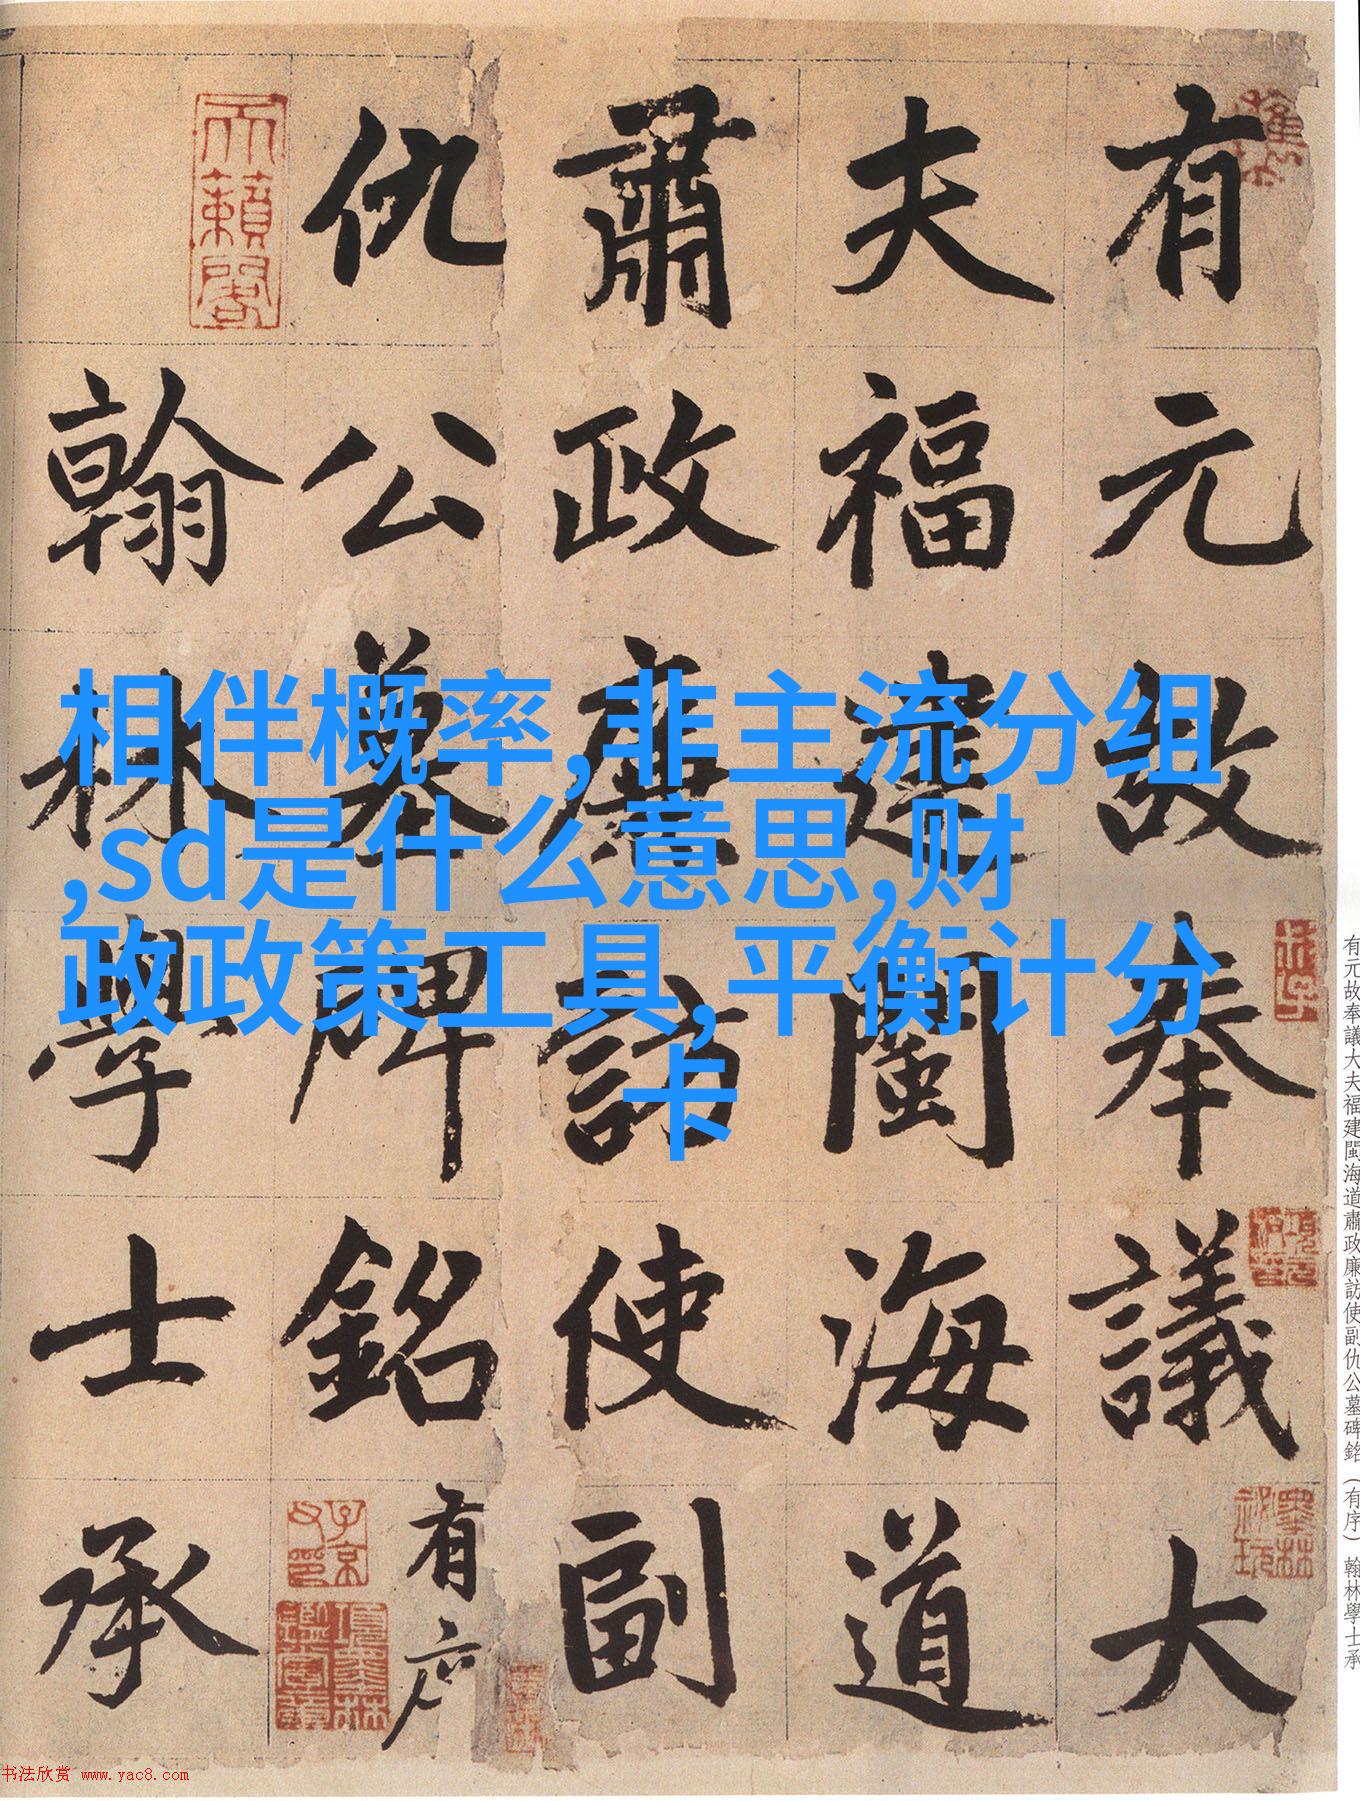 有元故奉議大
夫福建閩海道
肅政廉訪使副
仇公墓碑銘有序
翰林學士承
相伴概率,非主流分组
,sd是什么意思,财
政政策工具,平衡计分
卡
天籟閣
子京父印
有元故奉議大夫福建閩海道肅政廉訪使副仇公墓碑銘(有序)翰林學士承
书法欣赏 www.yac8.com